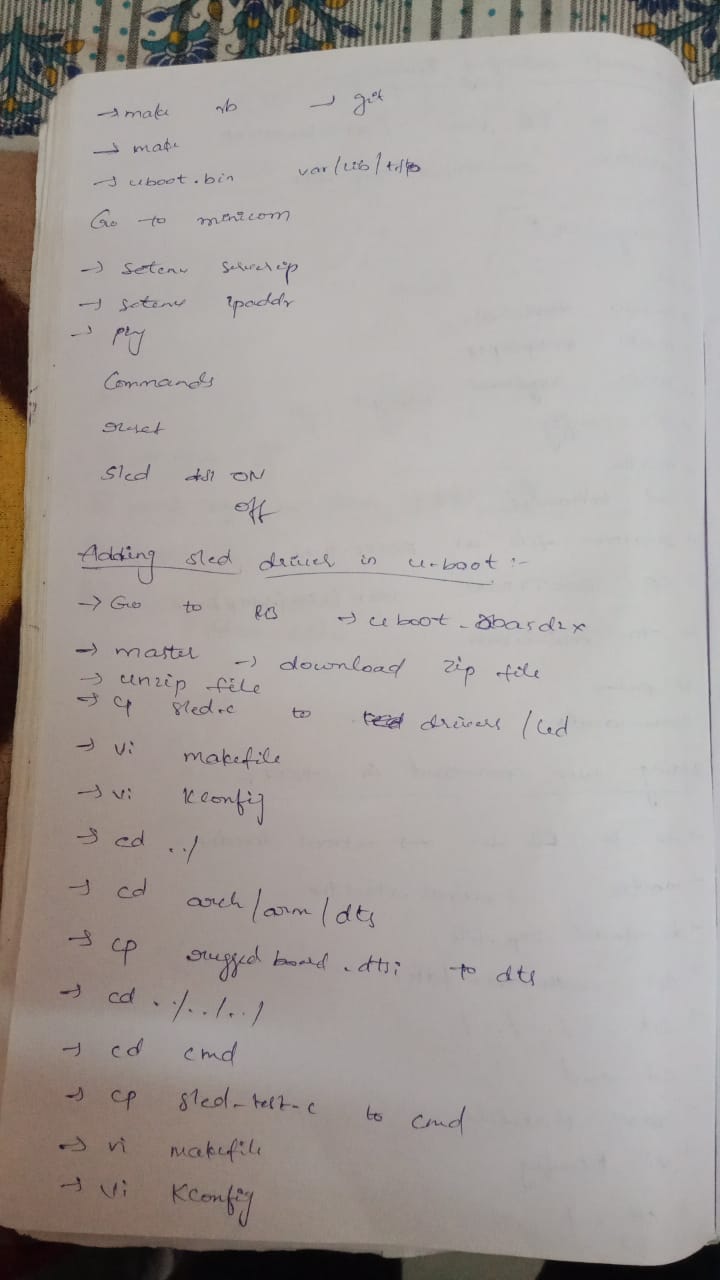 → make → git
→ make
→ uboot.bin var/lib/tftp
Go to minicom
→ setenv serverip
→ setenv ipaddr
→ ping
Commands
reset
sled ON
off
Adding sled driver in u-boot :-
→ Go to RB → uboot_
→ master → download zip file
→ unzip file
→ cp sled.c to drivers/led
→ vi makefile
→ vi Kconfig
→ cd ../
→ cd arch/arm/dts
→ cp rugged board.dtsi to dts
→ cd ../../../
→ cd cmd
→ cp sled_test.c to cmd
→ vi makefile
→ vi Kconfig